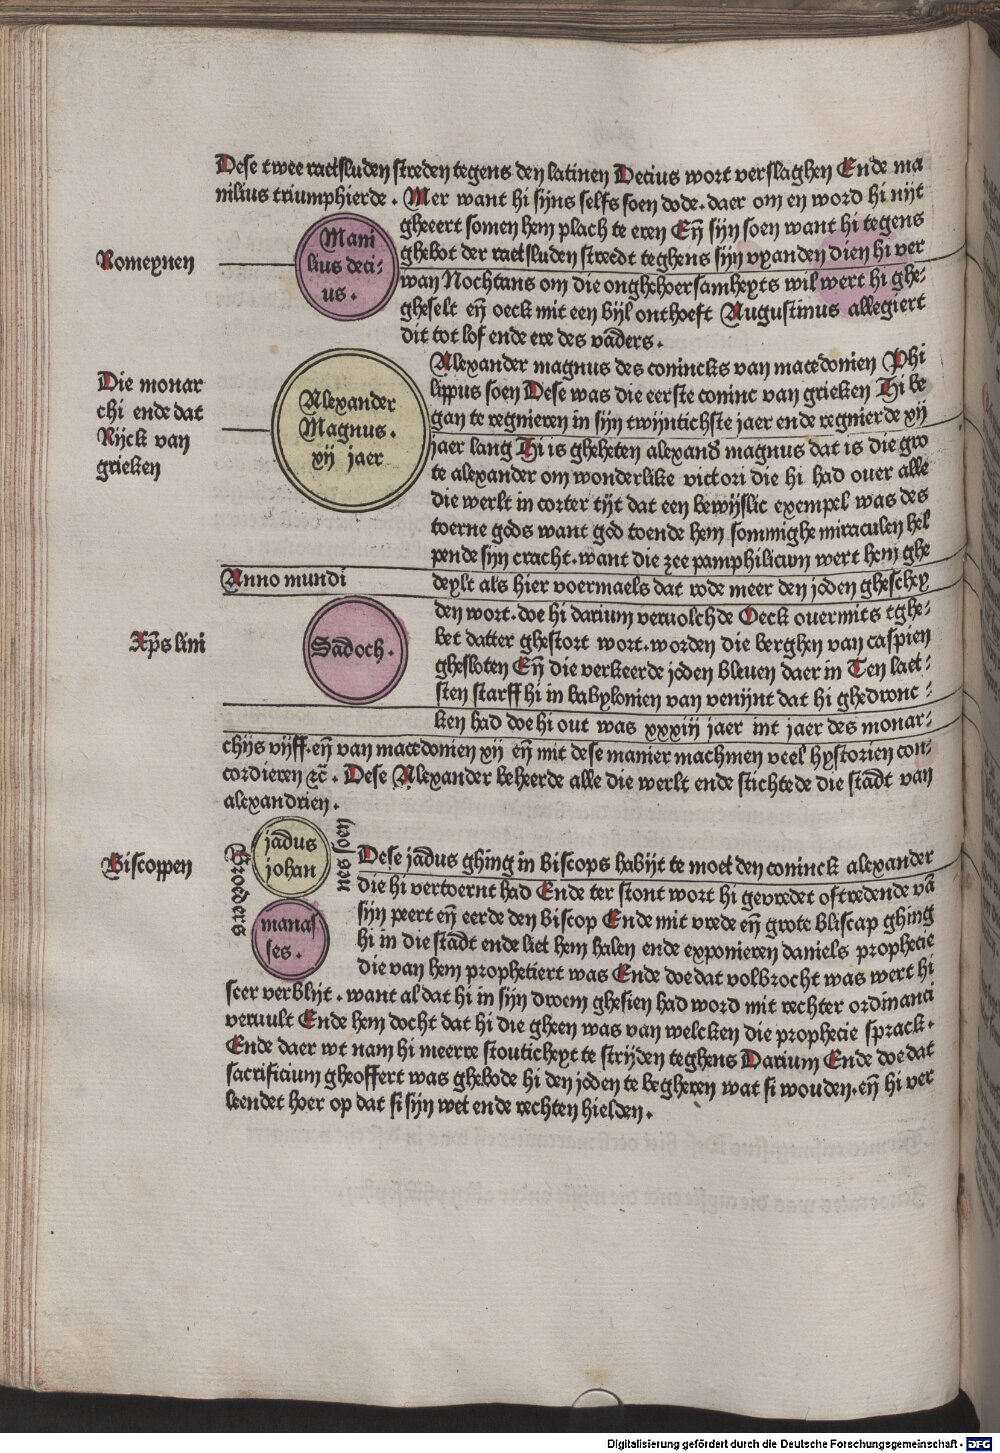 Dese twee raetsluden streden tegens den latinen Decius wort verslaghen Ende ma
nilius triumphierde . Mer want hi sijns selfs soen dode. daer om en word hi nijt
gheeert somen hem plach te eren Eñ sijn soen want hi tegens
Romeynen
Mani
lius deci-
us .
ghebot der raetsluden streedt teghens sijn vyanden dien hi ver
wan Nochtans om die onghehoersamheyts wil wert hi ghe-
gheselt eñ oeck mit een bijl onthoeft Augustinus allegiert
dit tot lof ende ere des vaders .
Die monar
chi ende dat
Rijck van
grieken
Alexander
Magnus .
xij jaer
Alexander magnus des conincks van macedonien Phi
lippus soen Dese was die eerste coninc van grieken Hi be
gan te regnieren in sijn twijntichste jaer ende regnierde xij
jaer lang Hi is gheheten alexand magnus dat is die gro
te alexander om wonderlike victori die hi had ouer alle
die werlt in corter tijt dat een bewijslic exempel was des
toerne gods want god toende hem sommighe miraculen hel
pende sijn cracht. want die zee pamphilicum wert hem ghe
Anno mundi
deylt als hier voermaels dat rode meer den joden gheschey
Xp̄s lini
Sadoch .
den wort. doe hi darium veruolchde Oeck ouermits tghe-
bet datter ghestort wort. worden die berghen van caspien
ghesloten Eñ die verkeerde joden bleuen daer in Ten laet-
sten starff hi in babylonien van venijnt dat hi ghedronc-
ken had doe hi out was xxxiij jaer int jaer des monar-
chijs vijff. eñ van macedonien xij eñ mit dese manier machmen veel hystorien con-
cordieren zc̄ . Dese Alexander beheerde alle die werlt ende stichtede die stadt van
alexandrien .
Biscoppen
Broeders
jadus
johan
nes soen
manas
ses .
Dese jadus ghing in Biscops habijt te moet den coninck alexander
die hi vertoernt had Ende ter stont wort hi gevredet oftredende vā
sijn peert eñ eerde den Biscop Ende mit vrede eñ grote bliscap ghing
hi in die stadt ende liet hem halen ende exponieren daniels prophecie
die van hem prophetiert was Ende doe dat volbrocht was wert hi
seer verblijt . want al dat hi in sijn droem ghesien had word mit rechter ordinanci
veruult Ende hem docht dat hi die gheen was van welcken die prophecie sprack .
Ende daer wt nam hi meerre stouticheyt te strijden teghens Darium Ende doe dat
sacrificium gheoffert was ghebode hi den joden te begheren wat si wouden. eñ hi ver
leendet hoer op dat si sijn wet ende rechten hielden .
Digitalisierung gefördert durch die Deutsche Forschungsgemeinschaft - DFG